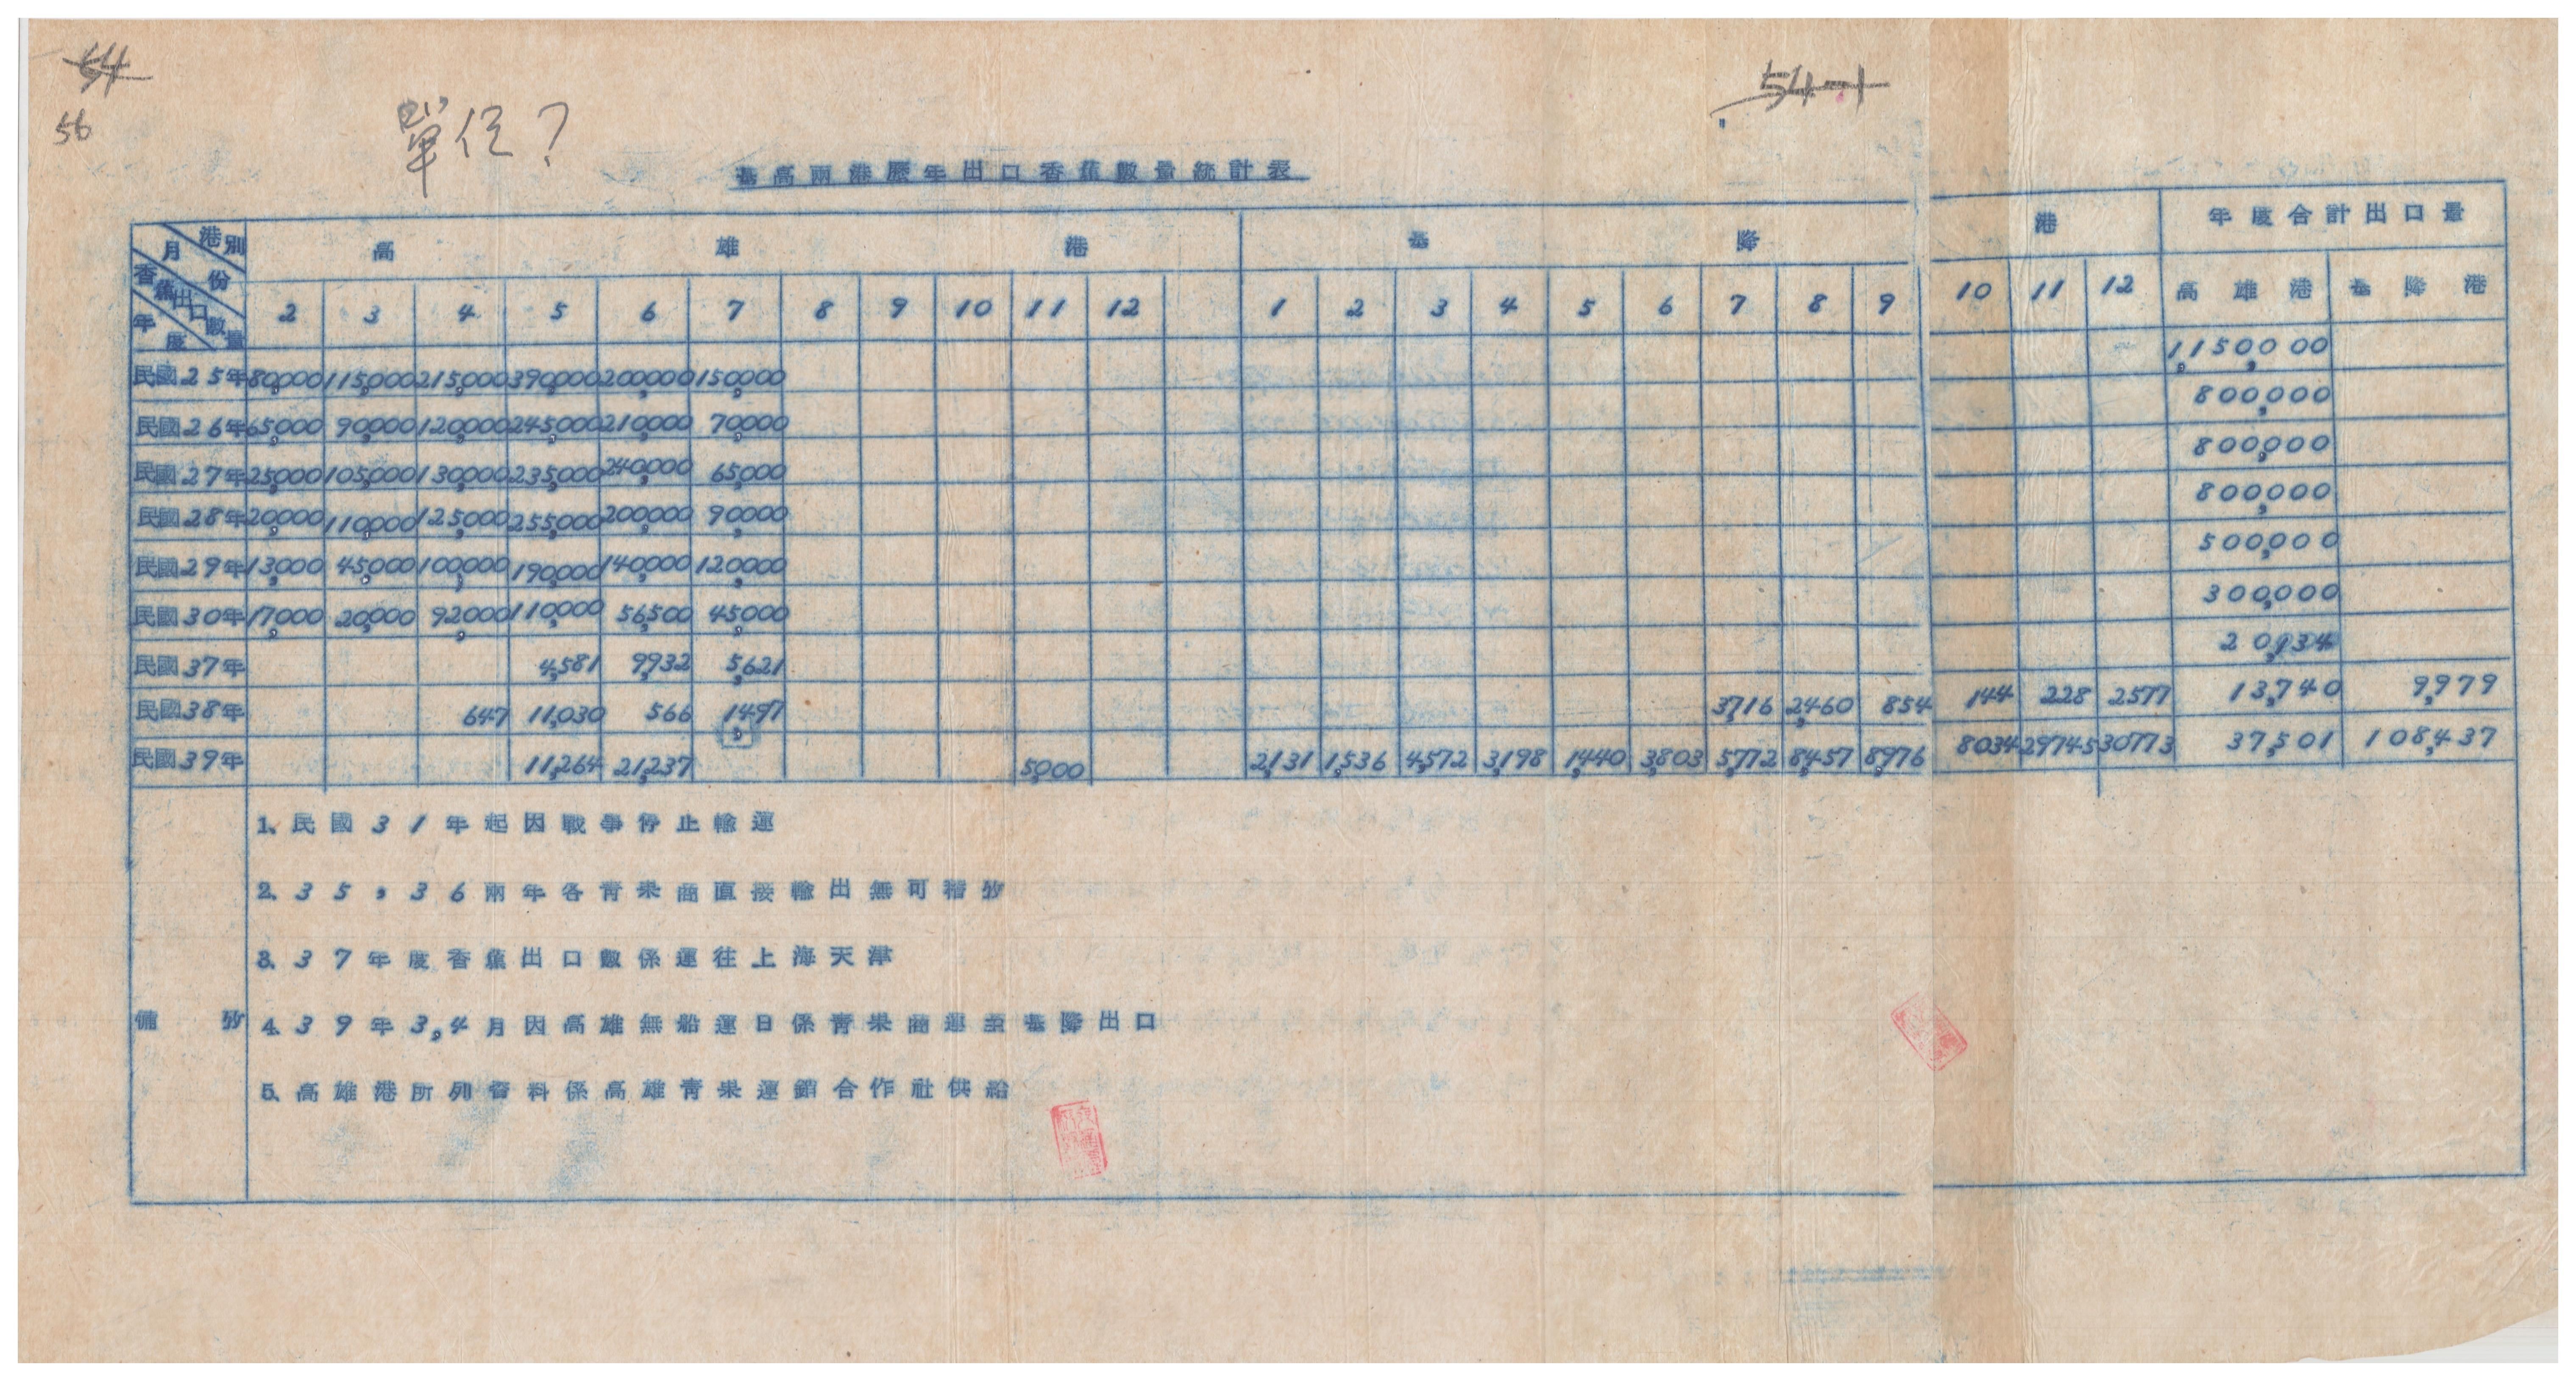 54
56
單位？
54-1
基高兩港歷年出口香蕉數量統計表
港別 月份 香蕉出口數量 年度 高雄港 基隆港 年度合計出口量
2 3 4 5 6 7 8 9 10 11 12 1 2 3 4 5 6 7 8 9 10 11 12 高雄港 基隆港
民國25年 80,000 115,000 215,000 390,000 200,000 150,000 1,150,000
民國26年 65,000 90,000 120,000 245,000 210,000 70,000 800,000
民國27年 25,000 105,000 130,000 235,000 240,000 65,000 800,000
民國28年 20,000 110,000 125,000 255,000 200,000 90,000 800,000
民國29年 13,000 45,000 100,000 190,000 140,000 120,000 500,000
民國30年 17,000 20,000 92,000 110,000 56,500 45,000 300,000
民國37年 4,581 9,932 5,621 20,134
民國38年 647 11,030 566 1,497 3,716 2,460 854 144 228 2577 13,740 9,979
民國39年 11,264 21,237 5,000 2,131 1,536 4,572 3,198 1,440 3,803 5,772 8,457 8,976 8034 29745 30773 37,501 108,437
備攷
1、民國31年起因戰爭停止輸運
2、35，36兩年各青果商直接輸出無可稽攷
3、37年度香蕉出口數係運往上海天津
4、39年3,4月因高雄無船運日係青果商運至基隆出口
5、高雄港所列資料係高雄青果運銷合作社供給